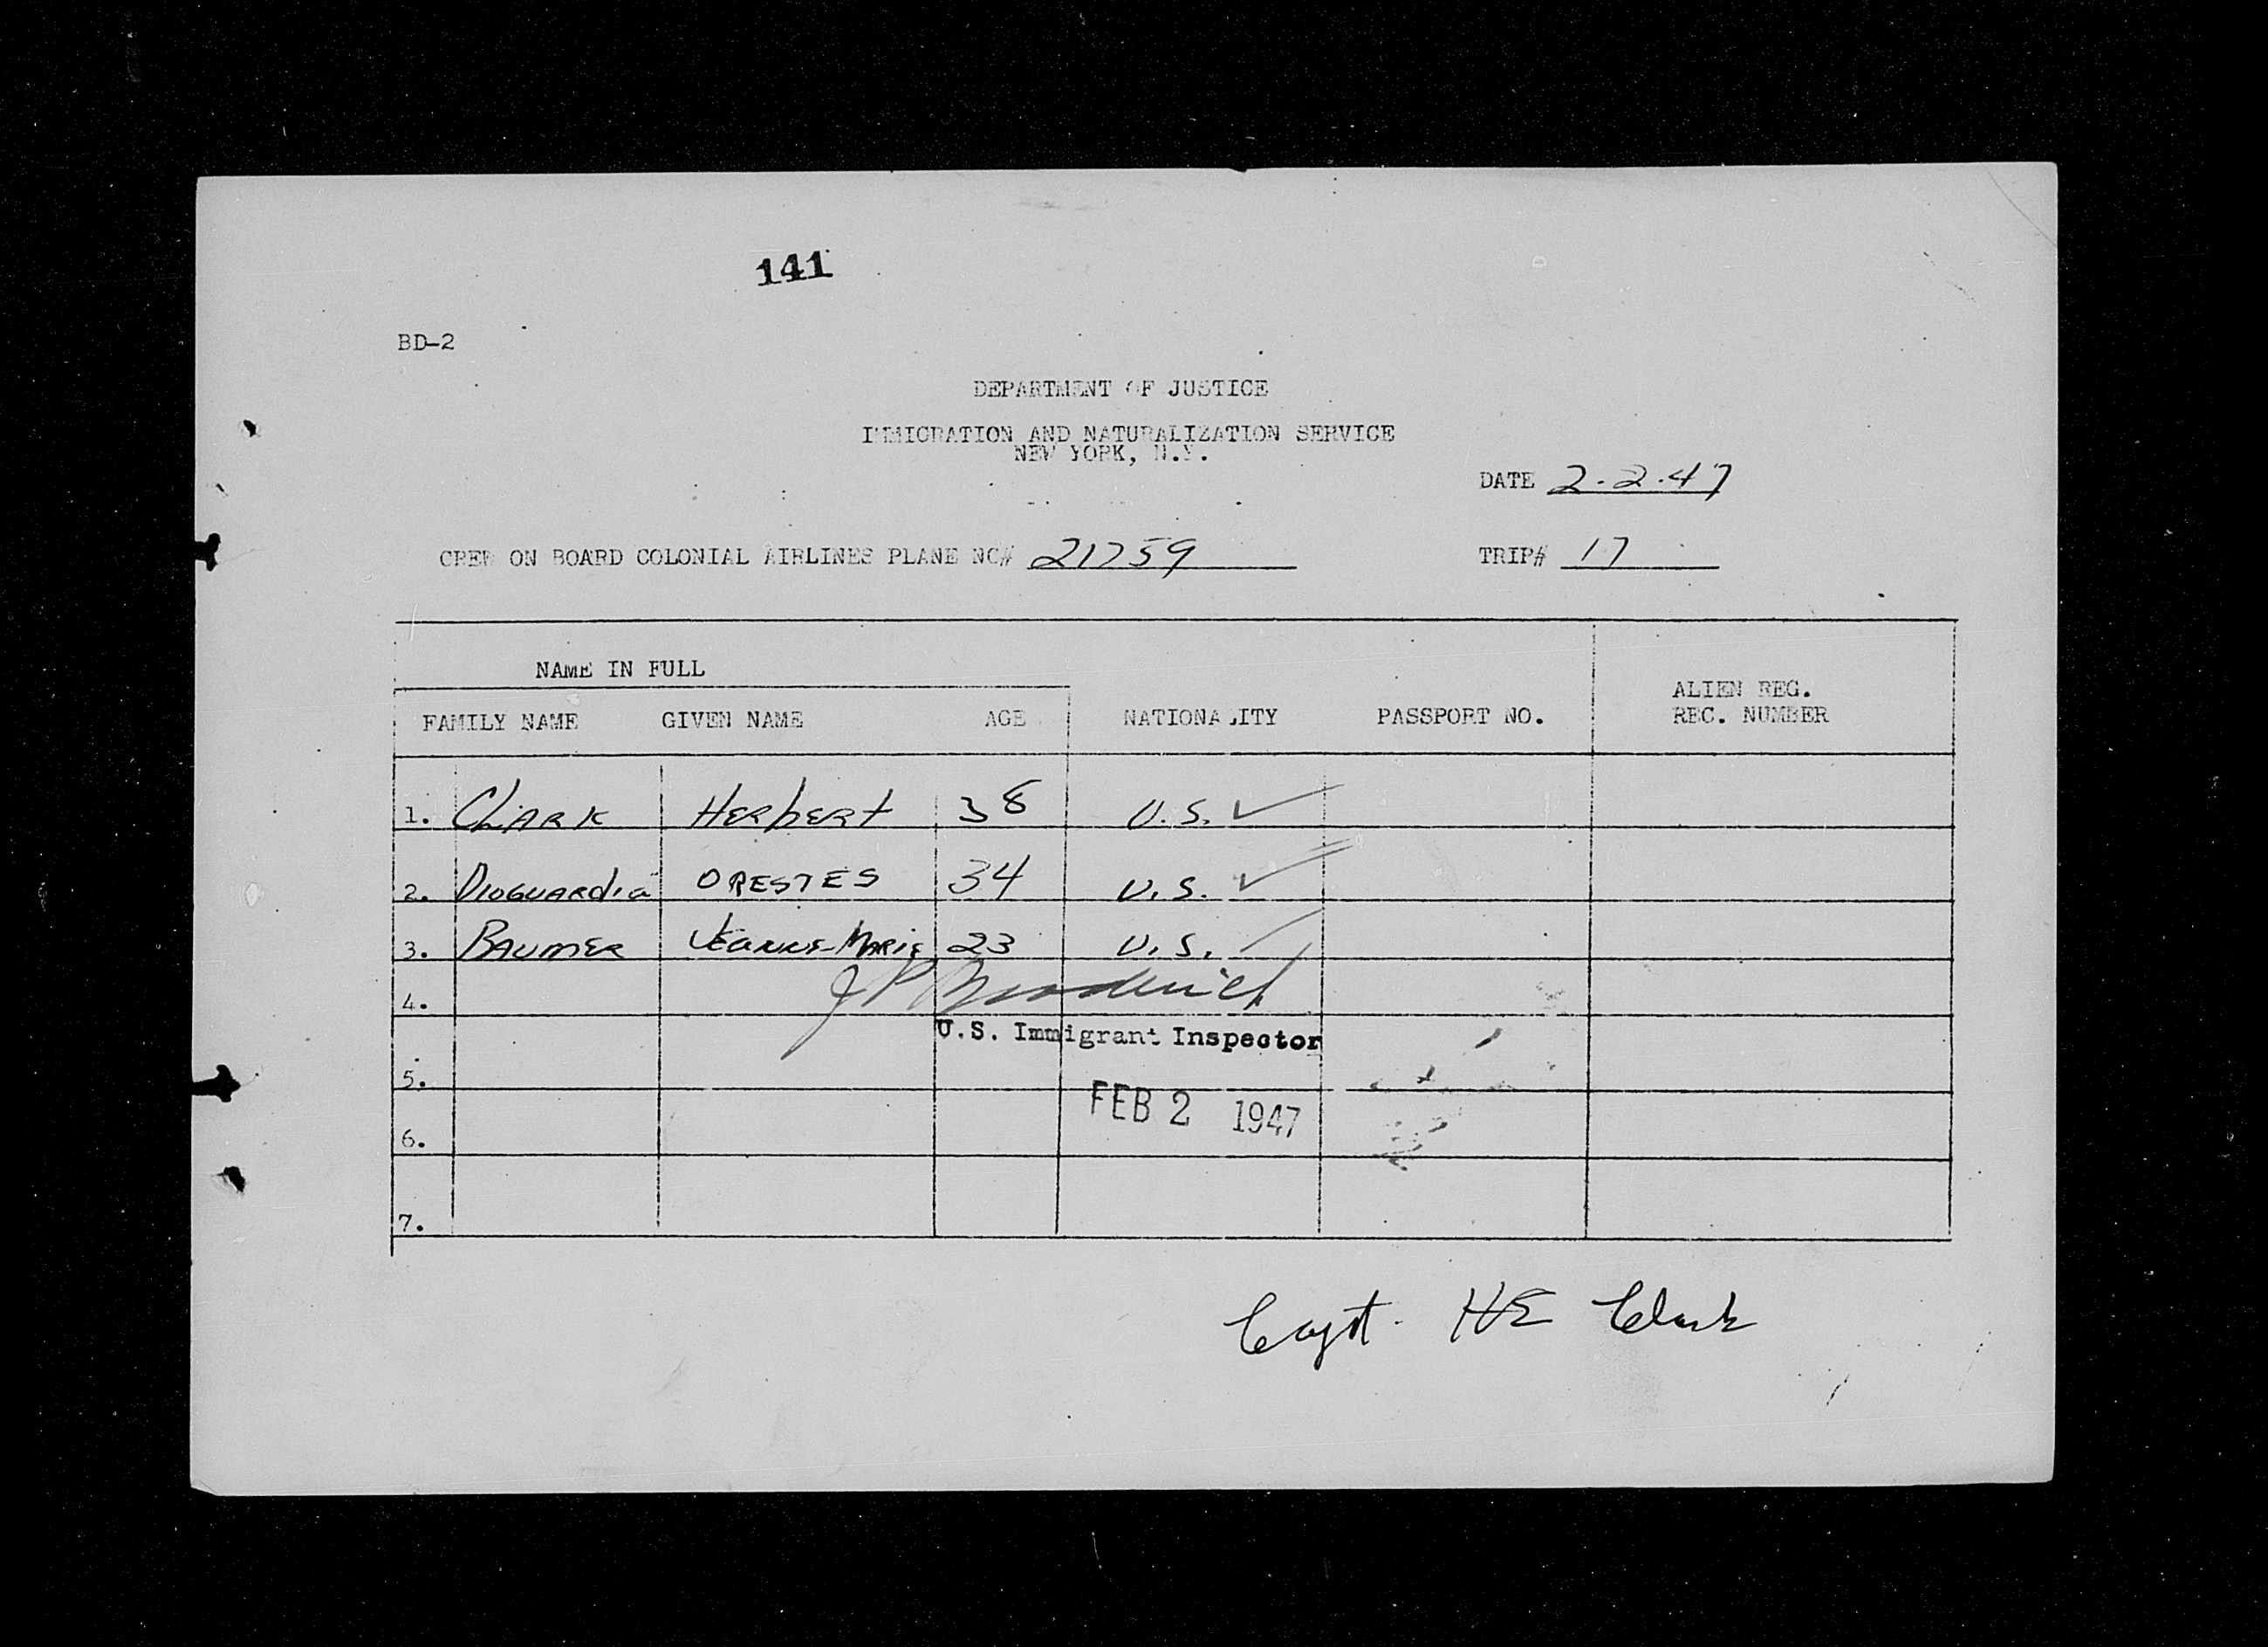 141
BD-2
DEPARTMENT OF JUSTICE
IMMIGRATION AND NATURALIZATION SERVICE
NEW YORK, N.Y.
DATE 2.2.47
CREW ON BOARD COLONIAL AIRLINES PLANE NC# 21759
TRIP# 17
NAME IN FULL
FAMILY NAME GIVEN NAME AGE NATIONALITY PASSPORT NO. ALIEN REG. REC. NUMBER
1. CLARK HERbERT 38 U.S. ✓
2. DIOGUARdia ORESTES 34 U.S. ✓
3. BAUMER JEANNE-MARIE 23 U.S. ✓
4. J P Broderick
U.S. Immigrant Inspector
5.
FEB 2 1947
6.
7.
Capt. HE Clark